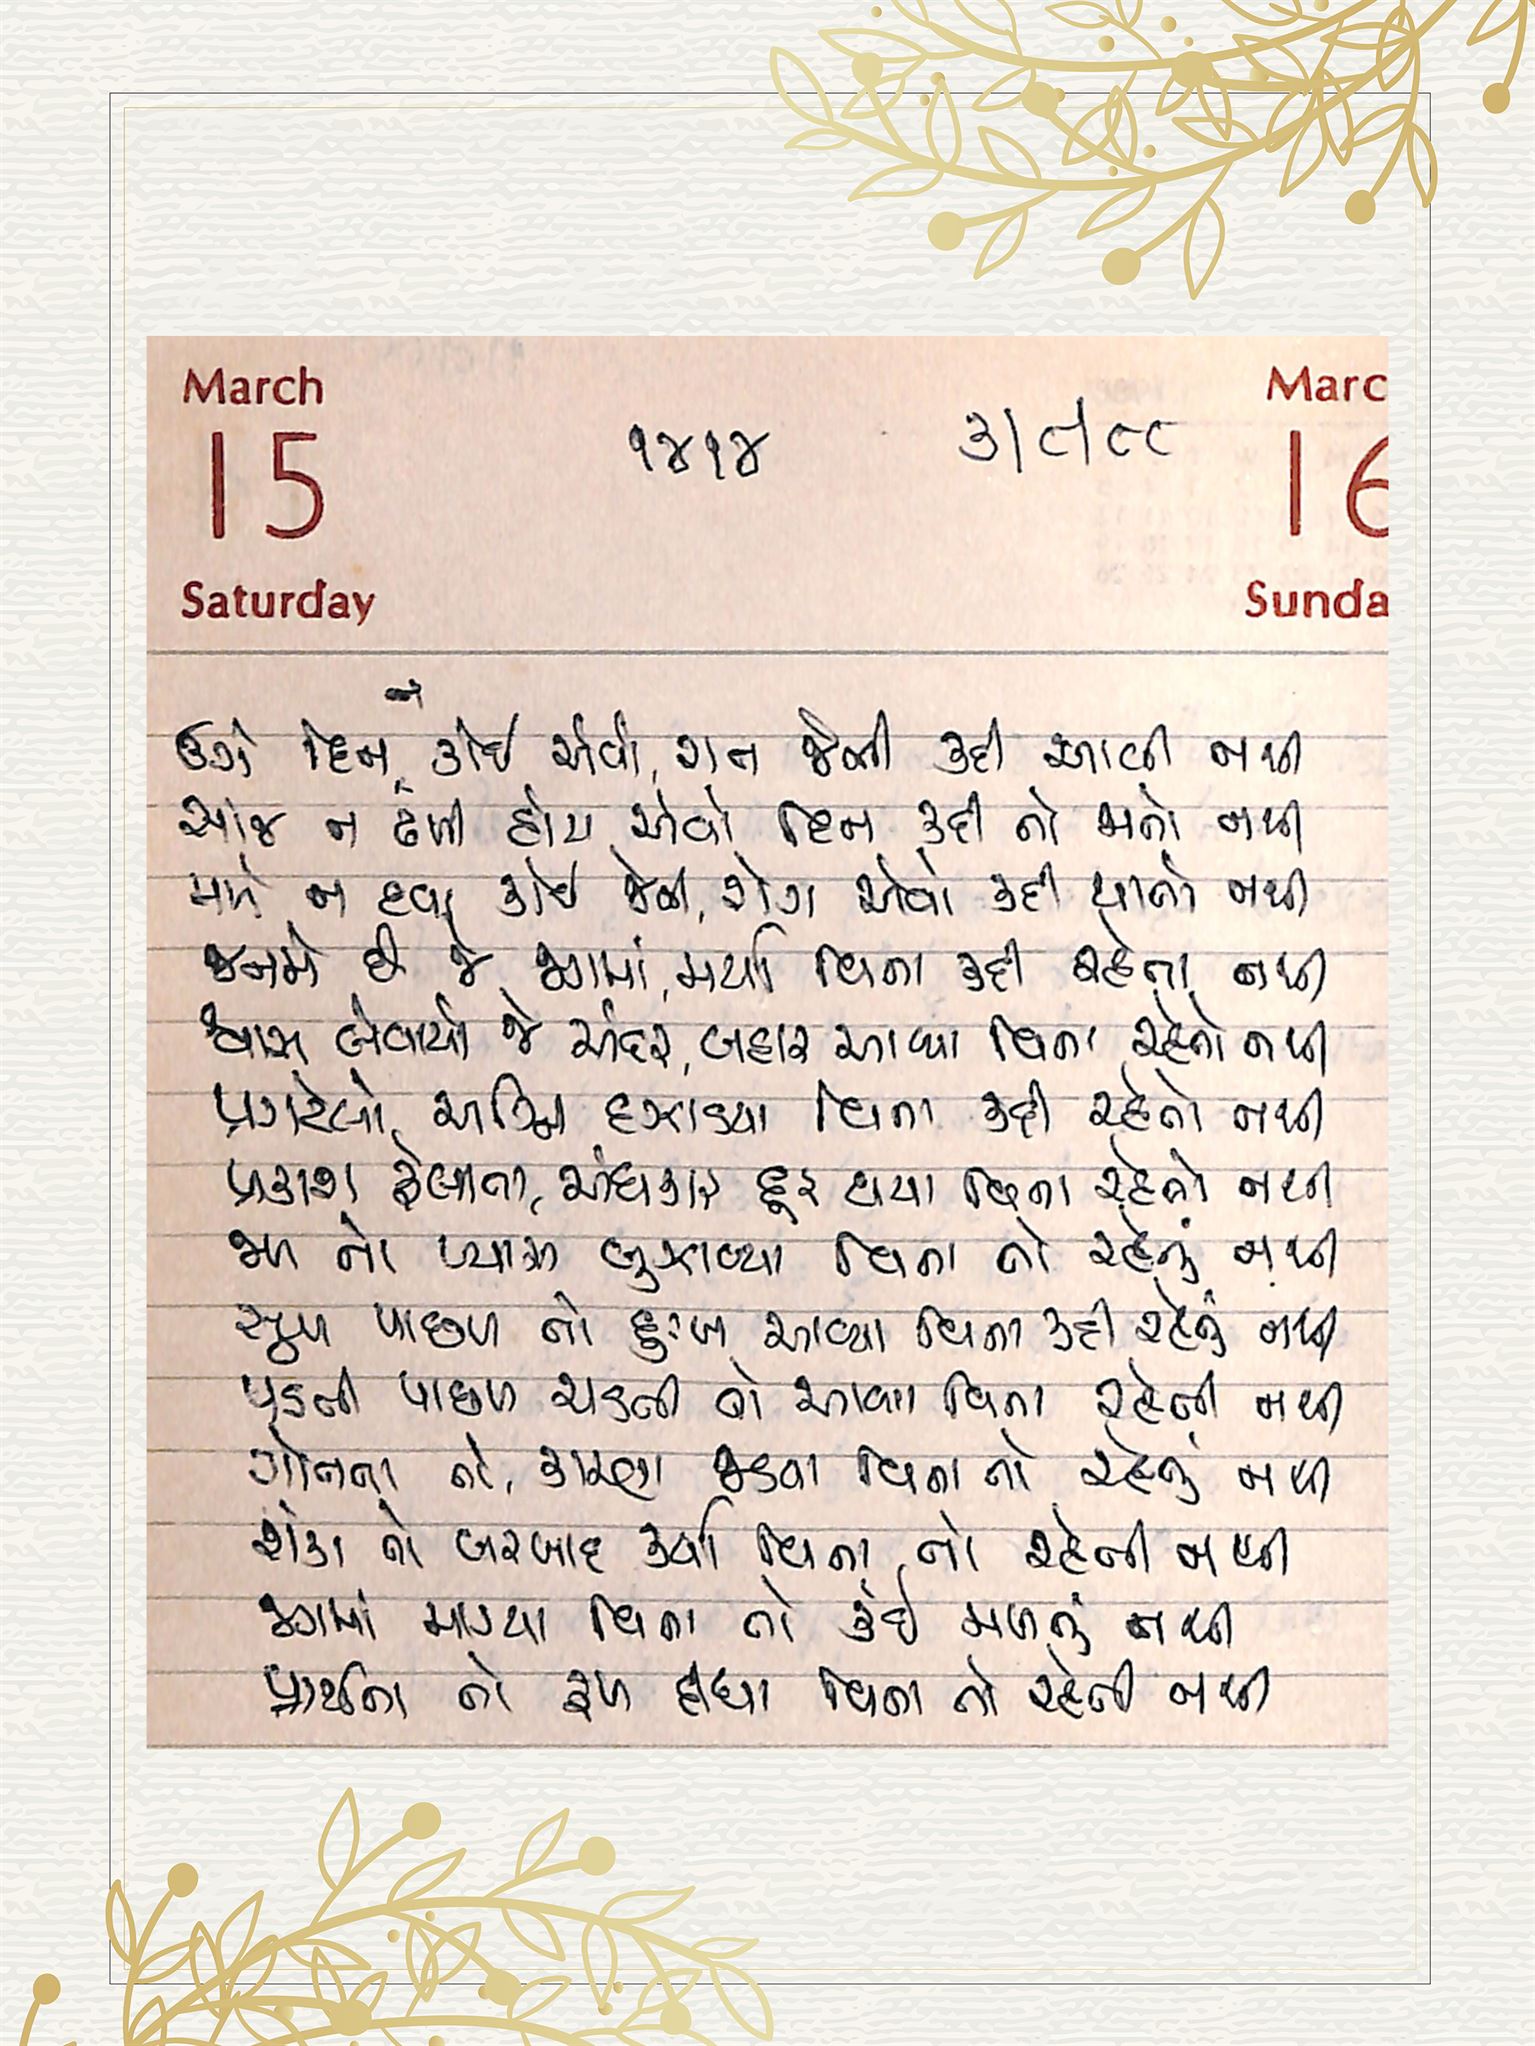 March
15
Saturday
૧૪૧૪
૩/૮/૮૮
Marc
16
Sunda
ન
ઉગે દિન કોઈ એવો, રાત જેની કદી આવી નથી
સાંજ ન ઢળી હોય એવો દિન કદી તો બનતો નથી
મળે ન દવા કોઈ જેની, રોગ એવો કદી થાતો નથી
જનમે છે જે જગમાં, મર્યા વિના કદી રહેતા નથી
શ્વાસ લેવાયો જે અંદર, બહાર આવ્યા વિના રહેતો નથી
પ્રગટેલો અગ્નિ દઝાડયા વિના કદી રહેતો નથી
પ્રકાશ ફેલાતા, અંધકાર દૂર થયા વિના રહેતો નથી
જળ તો પ્યાસ બુઝાવ્યા વિના તો રહેતું નથી
સુખ પાછળ તો દુઃખ આવ્યા વિના કદી રહેતું નથી
પડતી પાછળ ચડતી તો આવ્યા વિના રહેતી નથી
ગોતતા તો, કારણ જડવા વિના તો રહેતું નથી
શંકા તો બરબાદ કર્યા વિના તો રહેતી નથી
જગમાં માગ્યા વિના તો કંઈ મળતું નથી
પ્રાર્થના તો ફળ દીધા વિના તો રહેતી નથી